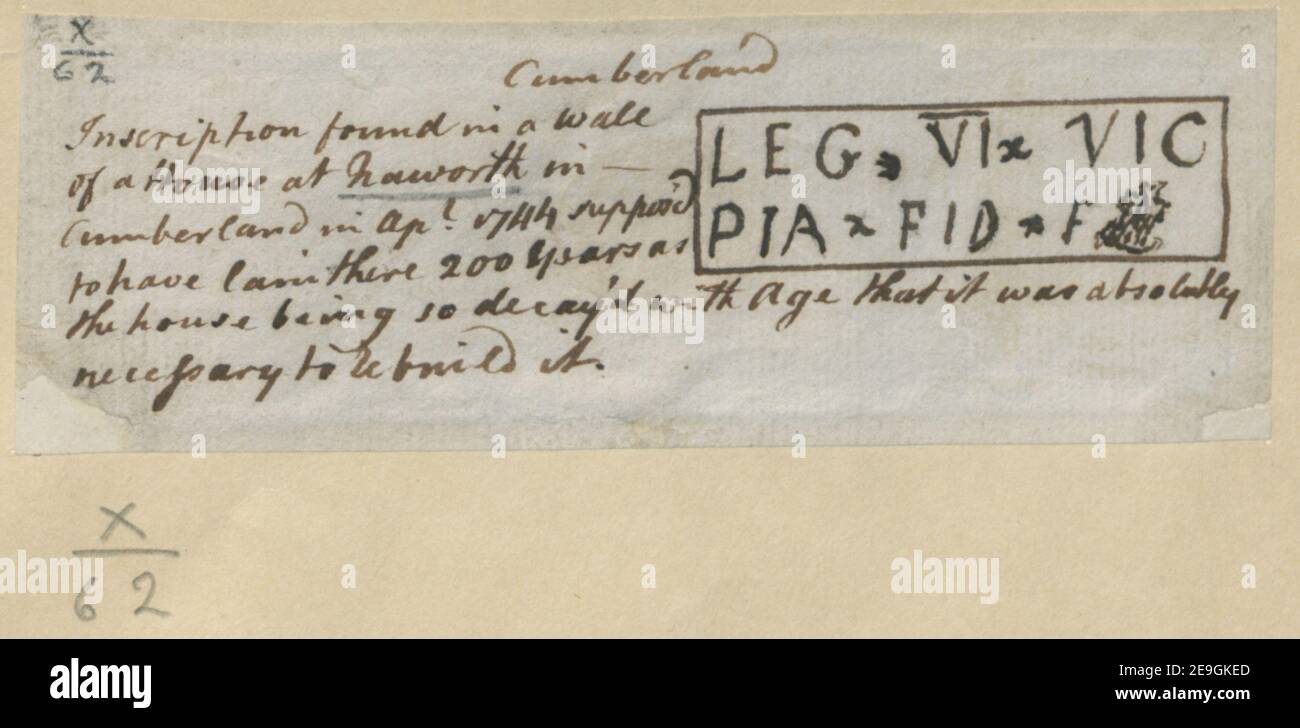 X
62
Cumberland
Inscription found in a Wall
of a House at Naworth in —
Cumberland in Apl. 1744 suppos'd
to have lain there 200 Years as
the house being so decay'd with Age that it was absolutely
necessary to rebuild it.
LEG VI VIC
PIA FID F
X
62
alamy
a
alamy
alamy
a
a
alamy
Image ID: 2E9GKED
www.alamy.com